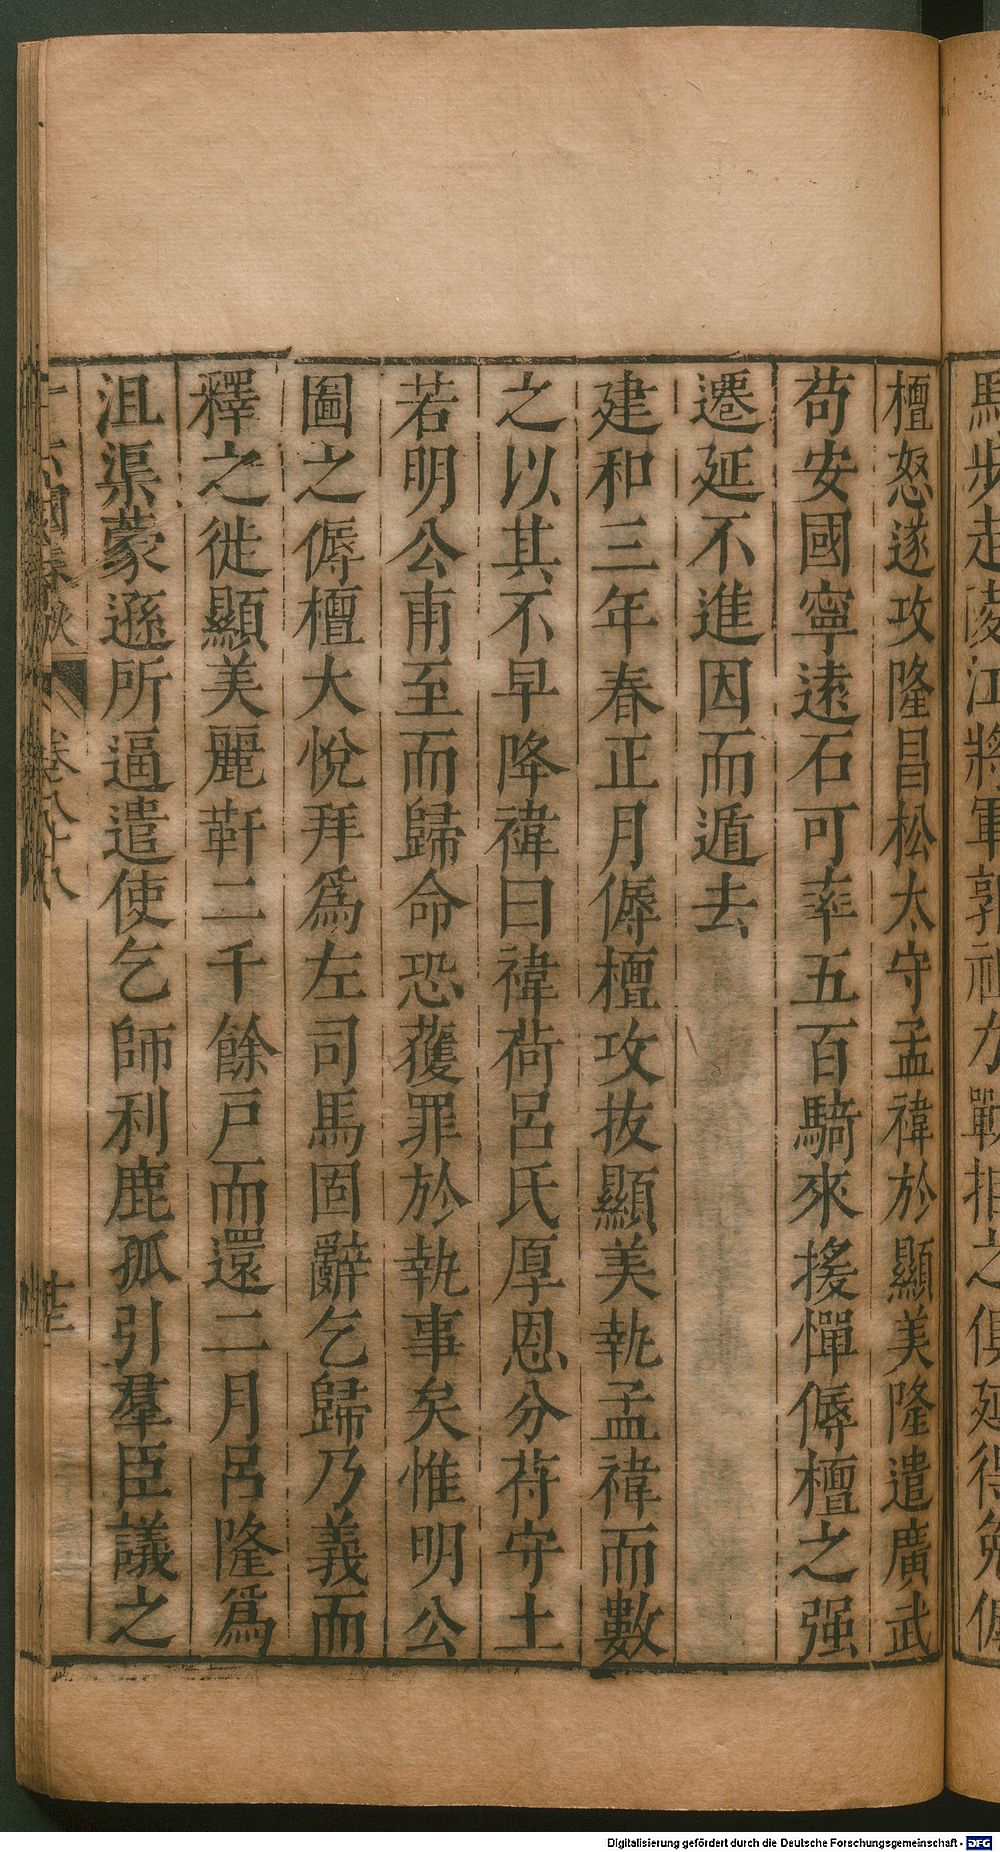 檀怒遂攻隆昌松太守孟禕於顯美隆遣廣武
苟安國寧遠石可率五百騎來援憚傉檀之强
遷延不進因而遁去
建和三年春正月傉檀攻拔顯美執孟禕而數
之以其不早降禕曰禕荷呂氏厚恩分苻守土
若明公甫至而歸命恐獲罪於執事矣惟明公
圖之傉檀大悅拜爲左司馬固辭乞歸乃義而
釋之徙顯美麗靬二千餘戸而還二月呂隆爲
沮渠蒙遜所逼遣使乞師利鹿孤引羣臣議之
國春秋 卷八十八
Digitalisierung gefördert durch die Deutsche Forschungsgemeinschaft - DFG